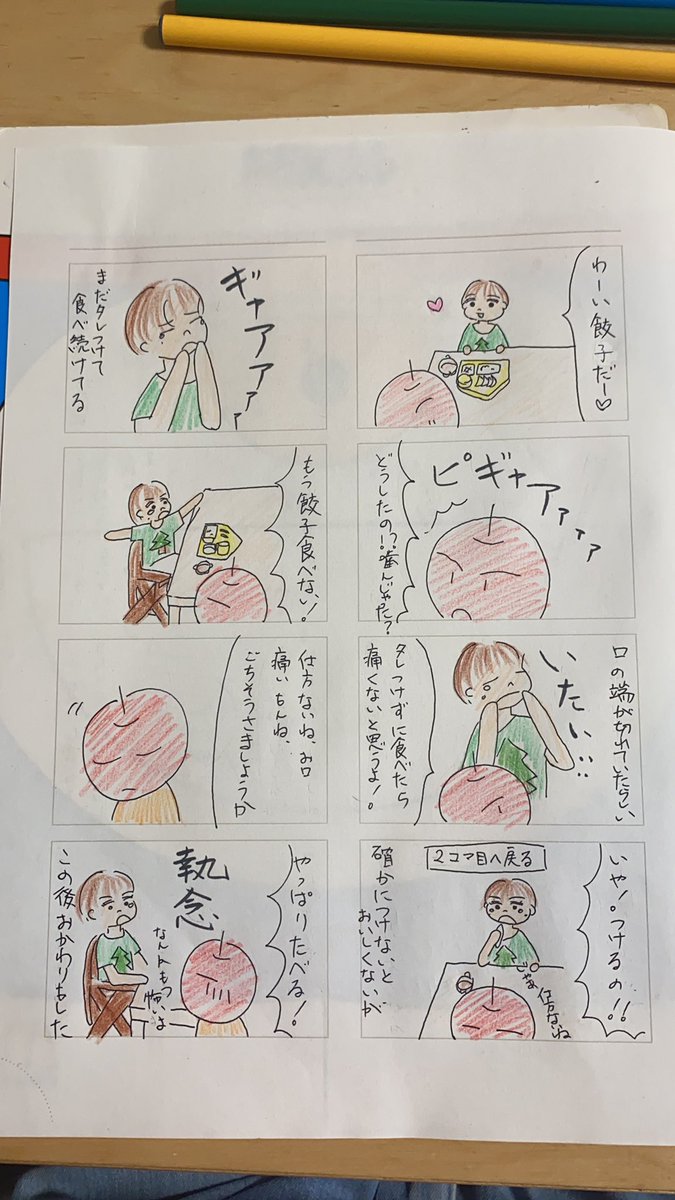 わーい餃子だー♡
ピギャアァァァ
どうしたの!?噛んじゃた?
口の端が切れていたらしい
いたい…
タレつけずに食べたら
痛くないと思うよ!
いや!つけるの!!
2コマ目へ戻る
仕方ないね
確かにつけないと
おいしくないが
ギャアアァァァ
まだタレつけて
食べ続けてる
もう餃子食べない!
仕方ないね、お口
痛いもんね、
ごちそうさましようか
やっぱりたべる!
執念
この後おかわりもした